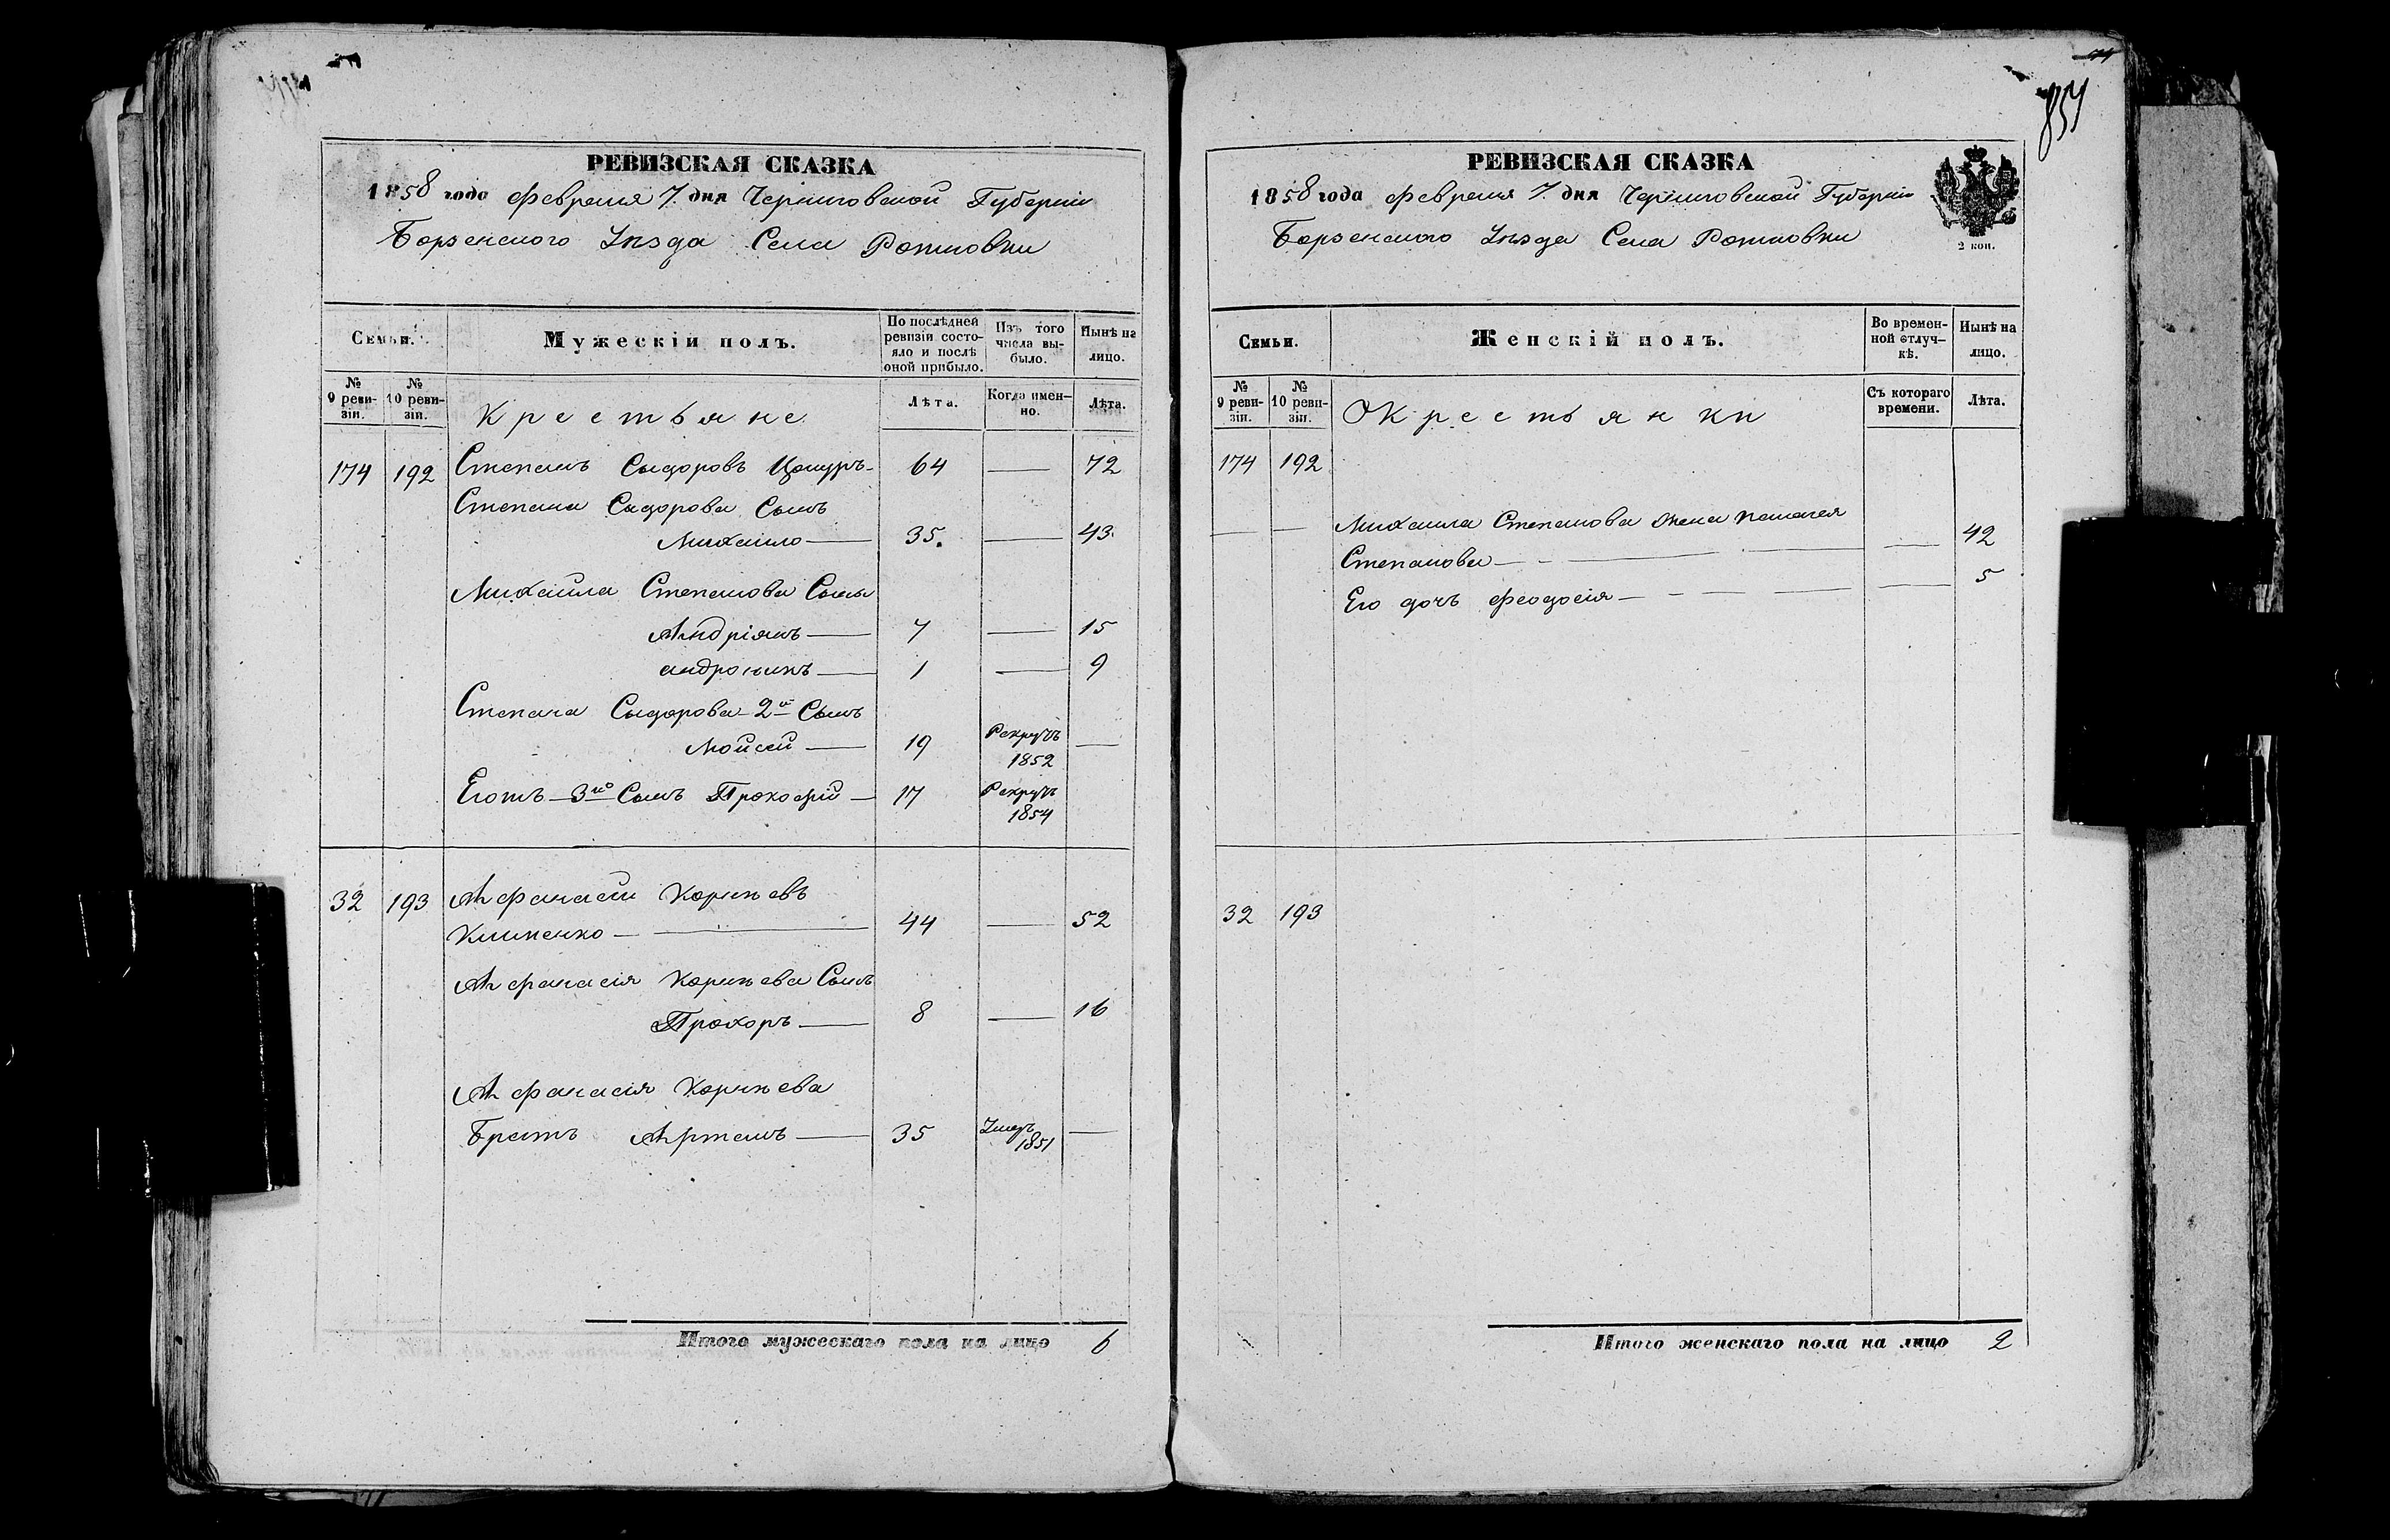 РЕВИЗСКАЯ СКАЗКА
1858 года Февраля 7. дня Черниговской Губерніи
Борзенского Уѣзда Села
Семьи.
Мужескій полъ.
По послѣдней ревизіи состояло и послѣ оной прибыло.
Изъ того числа выбыло.
Нынѣ на лицо.
№ 9 ревизіи.
№ 10 ревизіи.
Крестьяне
Лѣта.
Когда именно.
Лѣта.
174 192 Степанъ Сыдоровъ 64 — 72
Степана Сыдорова Сынъ
Михайло — 35. — 43.
Михайла Степанова Сыны
Андріянъ — 7 — 15
Андроникъ — 1 — 9
Степана Сыдорова 2й Сынъ
Мойсей — 19 Рекрутъ 1852 —
Егожъ 3й Сынъ Прокофій — 17 Рекрутъ 1854
32 193 Афанасій Корнѣевъ
Клименко — 44 — 52
Афанасія Корнѣева Сынъ
Прохоръ — 8 — 16
Афанасія Корнѣева
Братъ Артемъ — 35 Умеръ 1851 —
Итого мужескаго пола на лицо 6
857
РЕВИЗСКАЯ СКАЗКА
1858 года Февраля 7. дня Черниговской Губерніи
Борзенского Уѣзда Села
2 коп.
Семьи.
Женскій полъ.
Во временной отлучкѣ.
Нынѣ на лицо.
№ 9 ревизіи.
№ 10 ревизіи.
Крестьянки
Съ котораго времени.
Лѣта.
174 192
— — Михайла Степанова жена Пелагея
Степанова — — 42
Его дочъ Феодосія — — 5
32 193
Итого женскаго пола на лицо 2